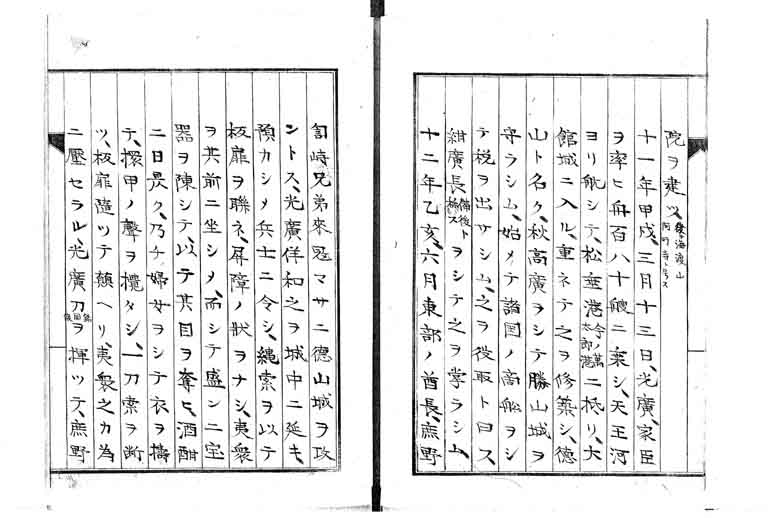 院ヲ建ツ、海渡山阿吽寺ト号ス
十一年甲戌、三月十三日、光廣、家臣
ヲ率ヒ舟百八十艘ニ乗シ、天王河
ヨリ航シテ、松前港今ノ萬太郎港ニ抵リ、大
館城ニ入ル、重ネテ之ヲ修築シ、德
山ト名ク、秋高廣ヲシテ勝山城ヲ
守ラシム、始メテ諸国ノ商船ヲシ
テ税ヲ出サシム、之ヲ役取ト曰ス、
紺廣長備後ト称スヲシテ之ヲ掌ラシム、
十二年乙亥、六月東部ノ酋長、庶野
訇峙兄弟來冦マサニ德山城ヲ攻
ントス、光廣佯和之ヲ城中ニ延キ、
預カシメ兵士ニ令シ、縄索ヲ以テ
板扉ヲ聯ネ、屏障ノ狀ヲナシ、夷衆
ヲ其前ニ坐シメ、而シテ盛ンニ宝
器ヲ陳シテ、以テ其目ヲ奪ヒ、酒酣
ニ日昃ク、乃チ婦女ヲシテ衣ヲ擣
テ、擐甲ノ聲ヲ攪タシ、一刀索ヲ断
ツ、板扉随ツテ顛ヘリ、夷衆之カ為
ニ壓セラル、光廣刀ヲ揮ツテ、庶野